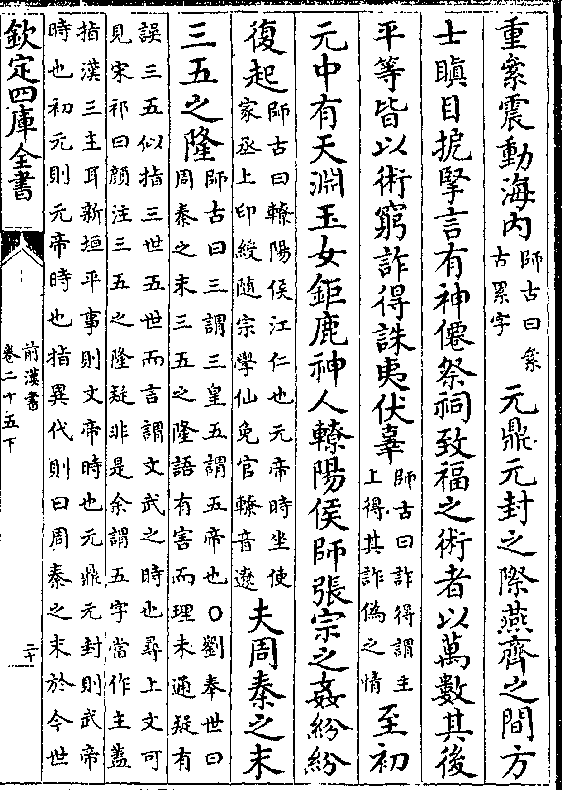 重絫震動海内師古曰絫古累字元鼎元封之際燕齊之間方
士瞋目扼掔言有神僊祭祠致福之術者以萬數其後
平等皆以術窮詐得誅夷伏辜師古曰詐得謂主上得其詐偽之情至初
元中有天淵玉女鉅鹿神人轑陽侯師張宗之姦紛紛
復起師古曰轑陽侯江仁也元帝時坐使家丞上印綬隨宗學仙免官轑音遼夫周秦之末
三五之隆師古曰三謂三皇五謂五帝也○劉奉世曰周秦之末三五之隆語有害而理未通疑有
誤三五似指三世五世而言謂文武之時也尋上文可
見宋祁曰顔注三五之隆疑非是余謂五字當作主蓋
指漢三主耳新垣平事則文帝時也元鼎元封則武帝
時也初元則元帝時也指異代則曰周秦之末於今世
欽定四庫全書
前漢書
卷二十五下
二十